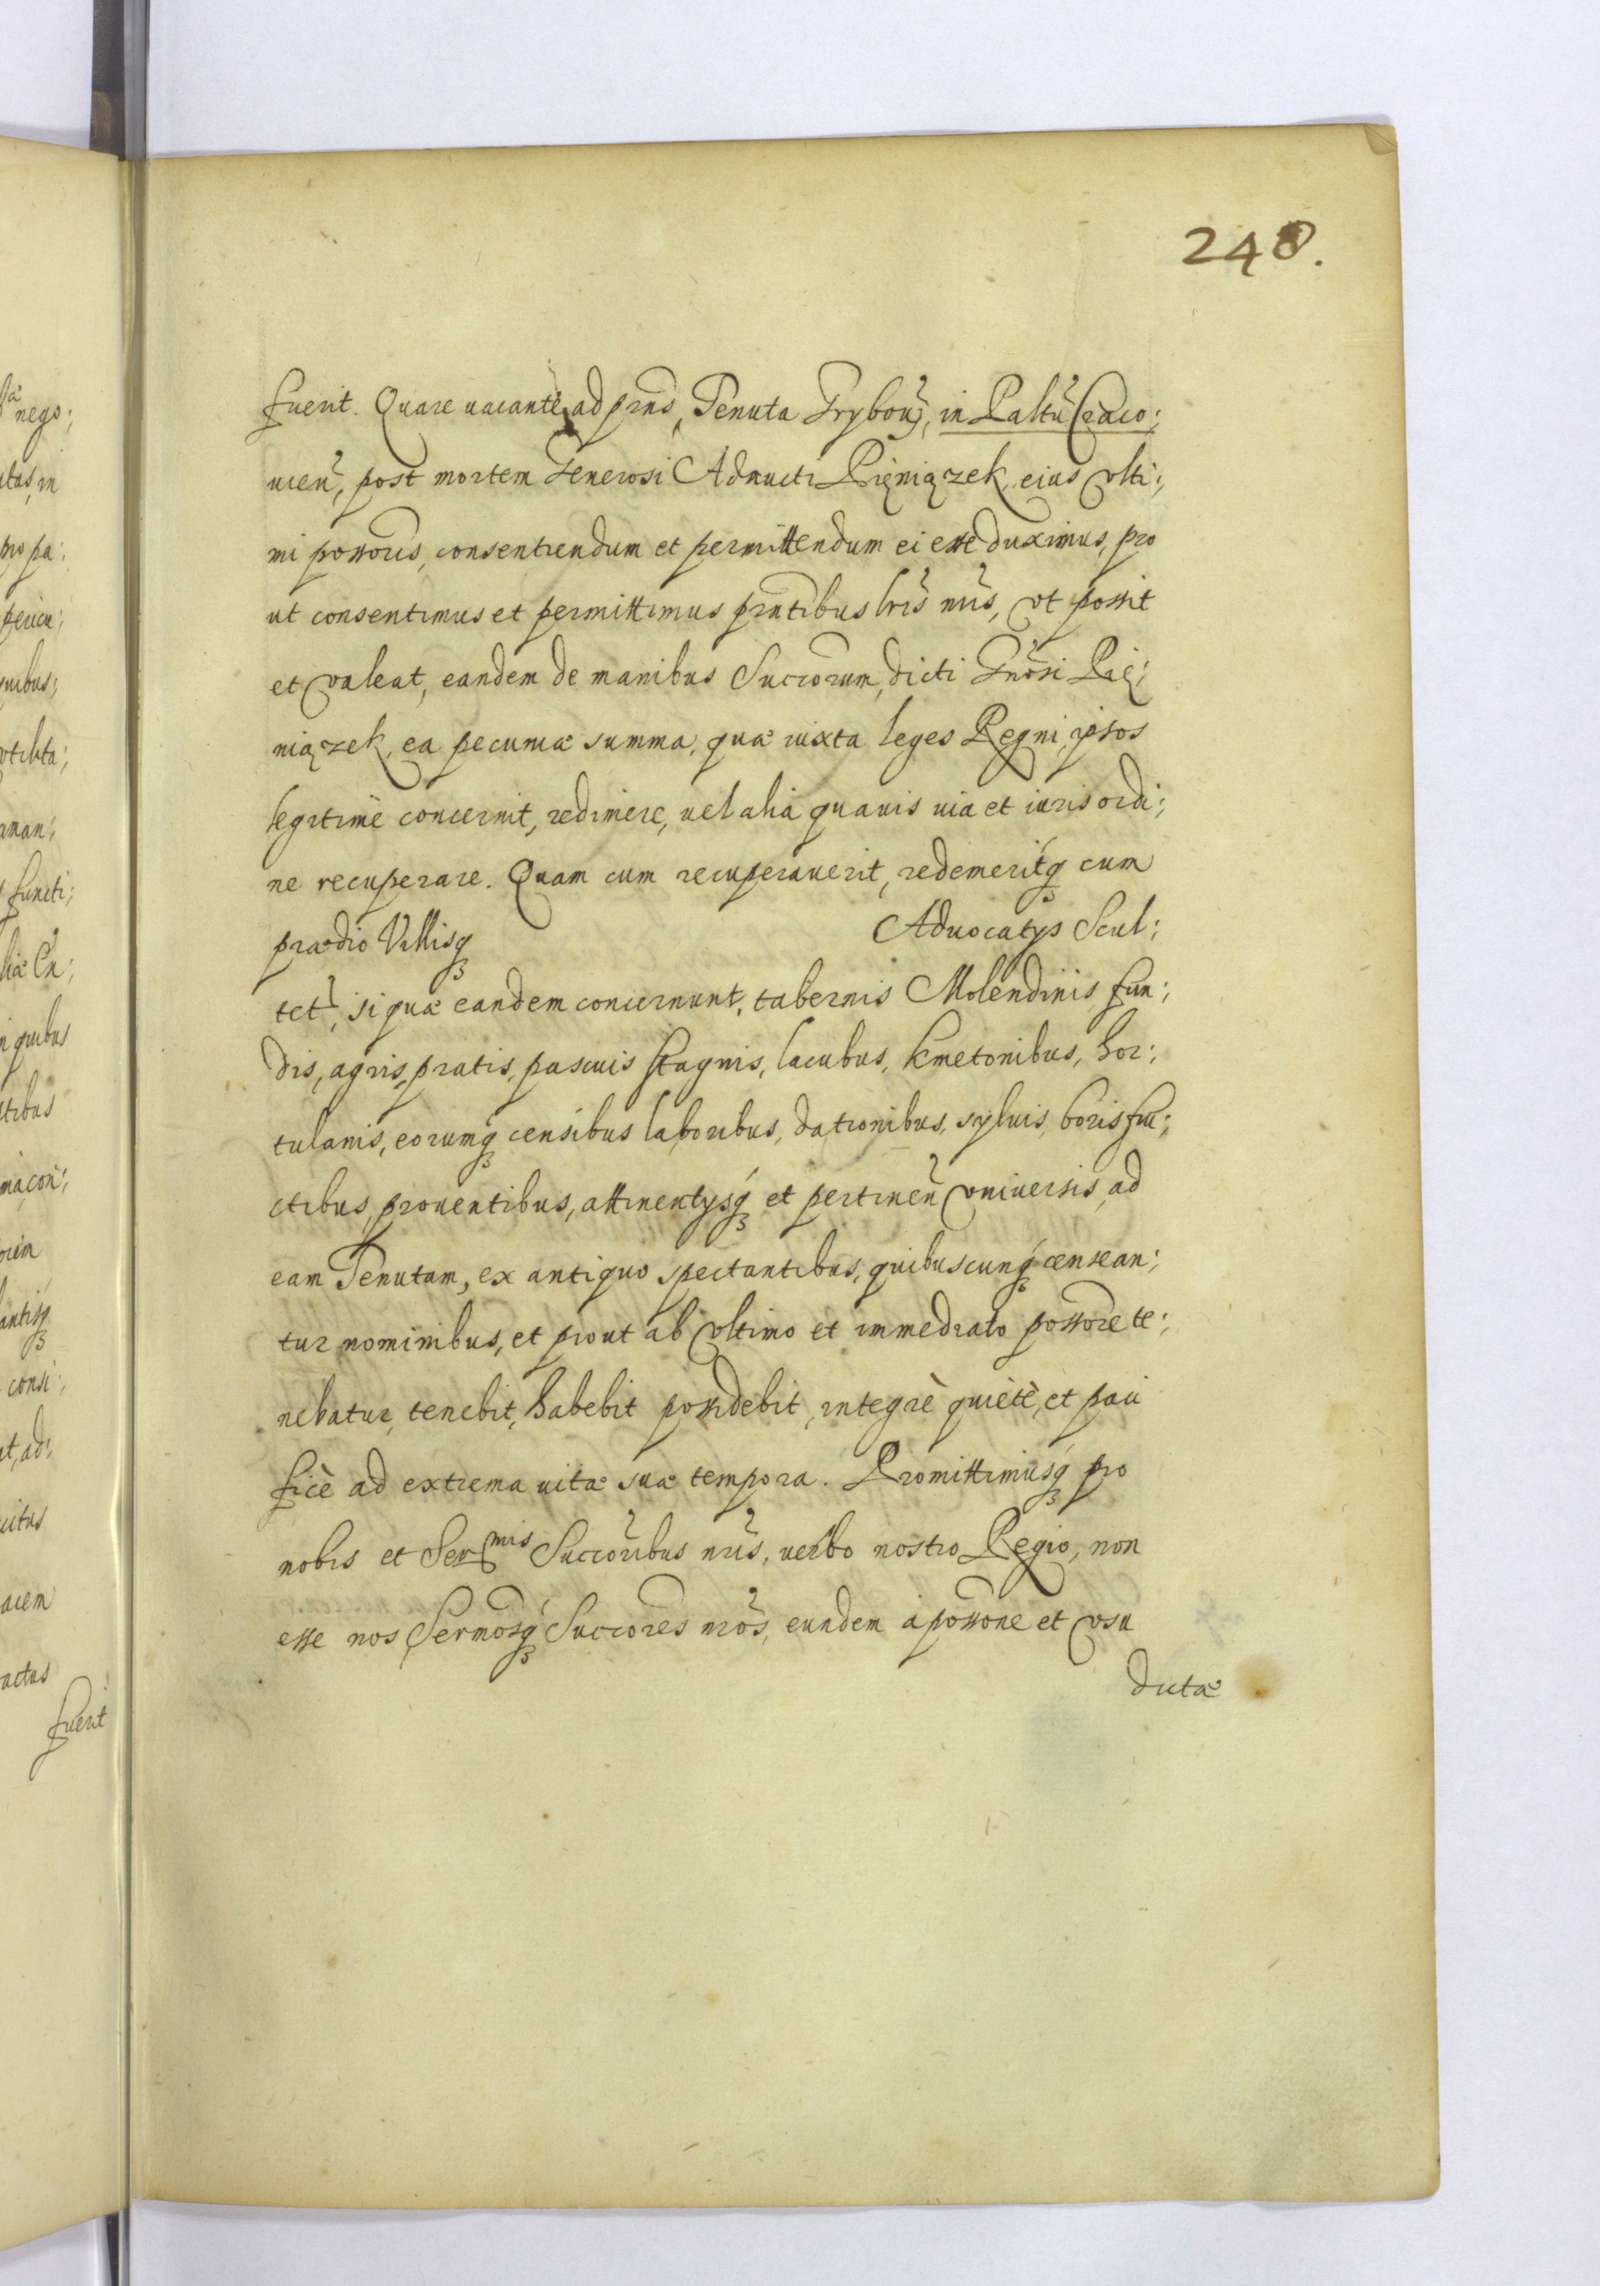 248.
fuerit. Quare uacante ad prns, Tenuta Grybou, in Paltũ Craco:,
uieñ, post mortem Generosi Adaucti Pięniązek, eius vlti:,
mi possoris, consentiendum et permittendum ei esse duximus, pro
ut consentimus et permittimus prntibus lris nris, vt possit
et valeat, eandem de manibus Succorum, dicti Gnosi Pię:,
niązek, ea pecuniæ summa, quæ iuxta leges Regni, ipsos
legitimè concernit, redimere, uel alia quauis uia et iuris ordi:,
ne recuperare. Quam cum recuperauerit, redemeritq cum
prædio Villisq Aduocatys Scul:,
tet, si quæ eandem concernunt, tabernis Molendinis fun:,
dis, agris, pratis, pascuis stagnis, lacubus, kmetonibus, hor:,
tulanis, eorumq censibus laboribus, dationibus, syluis, boris fru:,
ctibus, prouentibus, attinentysq et pertineñ vniuersis, ad
eam Tenutam, ex antiquo spectantibus, quibuscunq censean:,
tur nominibus, et prout ab vltimo et immediato possore te:,
nebatur, tenebit, habebit possidebit, integrè quietè, et paci
ficè ad extrema uitæ suæ tempora. Promittimusq pro
nobis et Sermis Succoribus nris, uerbo nostro Regio, non
esse nos Sermosq Succores nros, eundem à possone et vsu
dictæ
nego:,
itas, in
pro pa:,
pericu:,
man:,
functi:,
n quibus
tibus
consi:,
t, ad:,
actus
fuerit